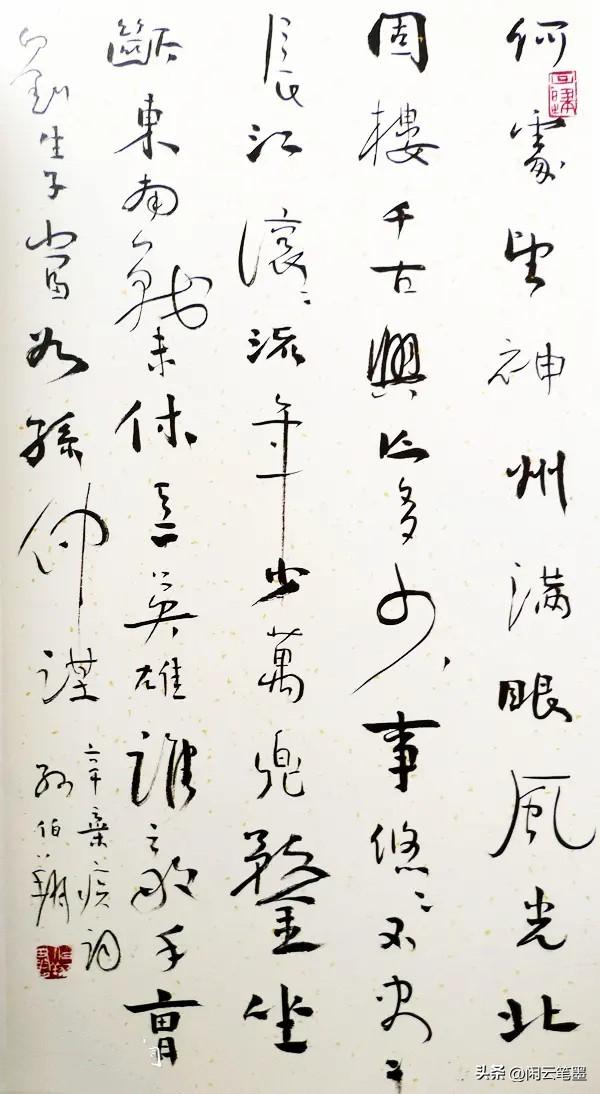 何處望神州满眼風光北
固樓千古興亡多少事悠〻不尽
長江滾〻流年少萬兜鍪坐
斷東南戰未休天下英雄誰敵手曹
劉生子當如孫仲謀
辛棄疾詞
孙伯翔
头条 @闲云笔墨